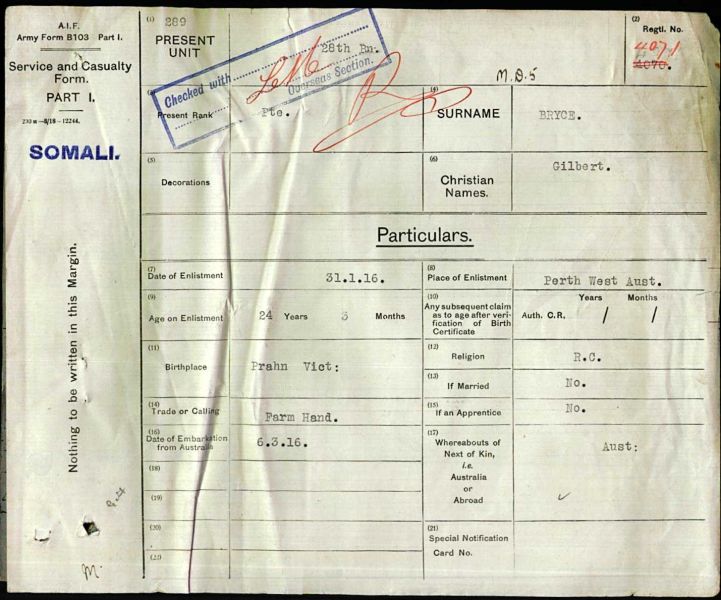 A.I.F.
Army Form B103 Part I.
Service and Casualty
Form.
PART I.
230 M—8/18—12244.
SOMALI.
Nothing to be written in this Margin.
M.
(1) 289
PRESENT
UNIT
28th Bn.
Checked with
Overseas Section.
(2)
Regtl. No.
4071
4070.
M.D.5
Present Rank
Pte.
(4)
SURNAME
BRYCE.
(5)
Decorations
(6)
Christian
Names.
Gilbert.
Particulars.
(7)
Date of Enlistment
31.1.16.
(8)
Place of Enlistment
Perth West Aust.
(9)
Age on Enlistment
24 Years 3 Months
(10)
Any subsequent claim
as to age after veri-
fication of Birth
Certificate
Auth. C.R.
Years Months
/ /
(11)
Birthplace
Prahn Vict:
(12)
Religion
R.C.
(13)
If Married
No.
(14)
Trade or Calling
Farm Hand.
(15)
If an Apprentice
No.
(16)
Date of Embarkation
from Australia
6.3.16.
(17)
Whereabouts of
Next of Kin,
i.e.
Australia
or
Abroad
Aust:
(18)
(19)
(20)
(21)
Special Notification
Card No.
(22)